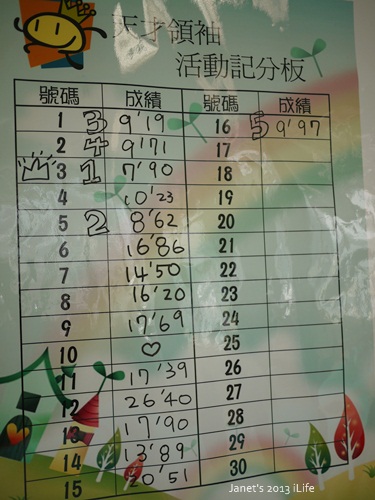 天才領袖
活動記分板
號碼 成績 號碼 成績
1 3 9'19 16 5 9'97
2 4 9'71 17
3 1 7'90 18
4 10'23 19
5 2 8'62 20
6 16'86 21
7 14'50 22
8 16'20 23
9 17'69 24
10 ♡ 25
11 17'39 26
12 26'40 27
13 17'90 28
14 13'89 29
15 20'51 30
Janet's 2013 iLife